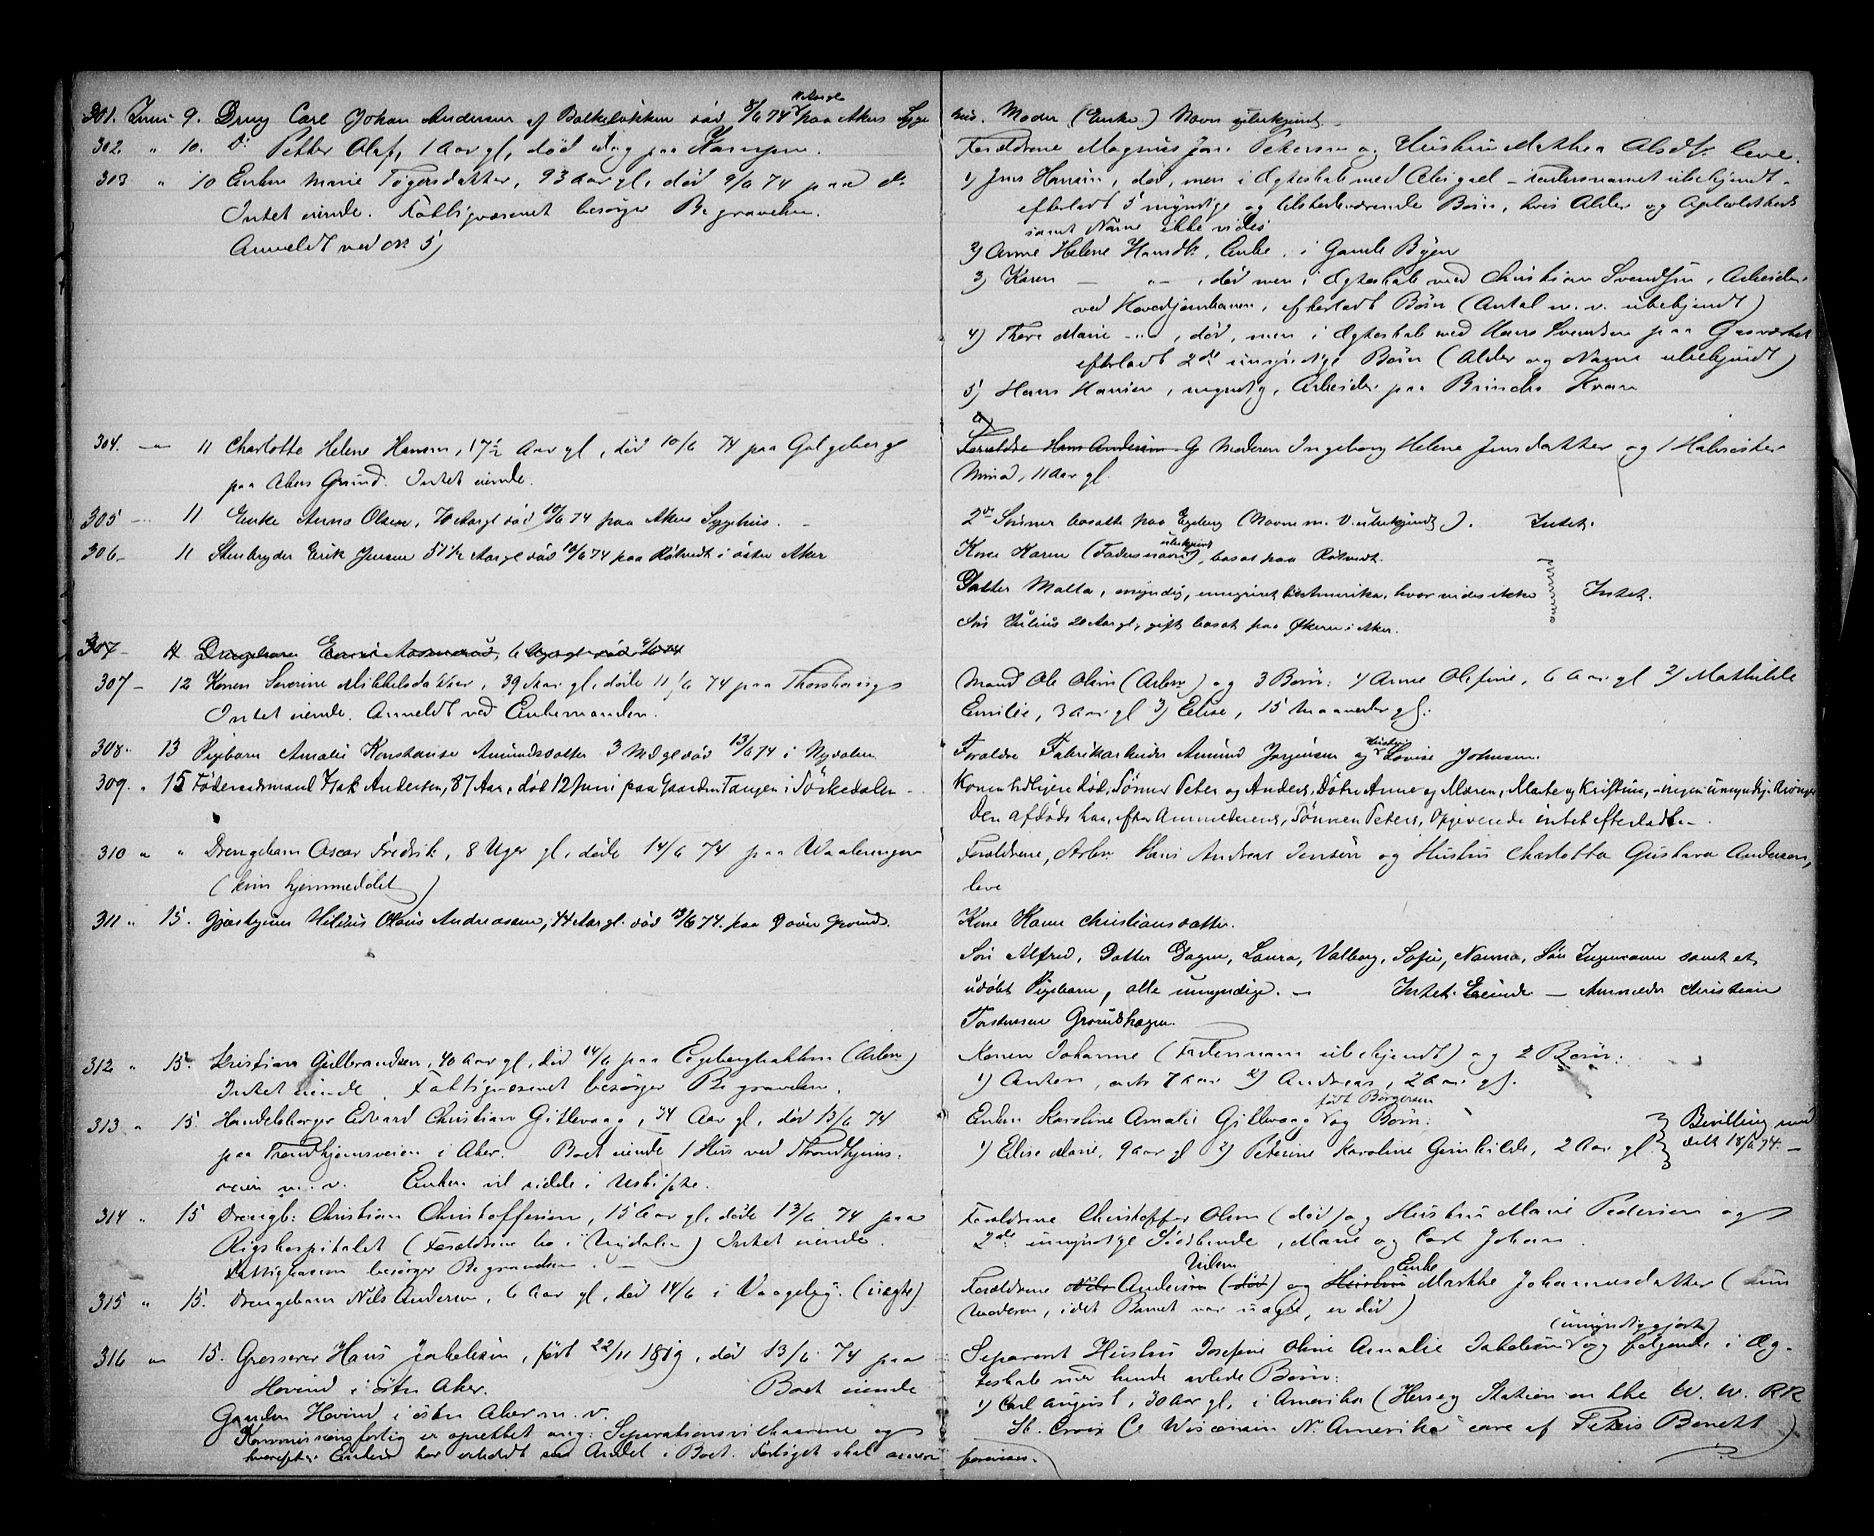 301. Juni 9. Dreng Carl Johan Andersen af Bakkeløkken død 8/6 74 paa Akers Syge
hus. Moder (Enke) Navn ubekjendt.
302. " 10. Do Petter Olaf, 1 Aar gl, død idag paa Kampen.
Forældrene Magnus Petersen og Hustru Mathea Olsdtr leve.
303 " 10 Enken Marie Tøgersdatter, 93 Aar gl, død 9/6 74 paa
Intet eiende. Fattigvæsenet besørger Begravelsen.
Anmeldt ved No 5)
1) Jens Hansen, død, men i Ægteskab med Abigael - Fadersnavnet ubekjendt -
efterladt 5 myndige og tilstedeværende Børn, hvis Alder og Opholdssted
samt Navne ikke vides
2) Anne Helene Hansdtr, Enke, i Gamle Byen
3) Karen — " — , død men i Ægteskab med Christian Svendsen, Arbeider
ved Hovedjernbanen, efterladt Børn (Antal m. v. ubekjendt)
4) Thora Marie — " , død, men i Ægteskab med Hans Svendsen paa Gasværket
efterladt 2de umyndige Børn (Alder og Navne ubekjendt)
5) Hans Hansen, myndig, Arbeider paa Brinchs Kvarn
304. — " 11 Charlotte Helene Hansen, 17 1/2 Aar gl, død 10/6 74 paa Galgeberg
paa Akers Grund. Intet eiende.
Forældre Hans Andersen og Moderen Ingeborg Helene Jensdatter og 1 Halvsøster
Mina, 11 Aar gl.
305 — 11 Enke Anna Olsen, 70 Aar gl død 10/6 74 paa Akers Sygehus.
2de Sønner bosatte paa Egeberg (Navne m. V. ubekjendt). Intet.
306 — 11 Stenhugger Erik Jensen 51 1/2 Aar gl død 10/6 74 paa Røtvedt i østre Aker
Kone Karen (Fadersnavn ubekjendt), bosat paa Røtvedt.
Datter Malla, myndig, emigrert til Amerika, hvor vides ikke Intet.
Søn Julius 20 Aar gl, gift bosat paa Økern i Aker.
307 — 11 Drengebarn
307 — 12 Konen Severine Mikkelsdatter, 39 Aar gl, døde 11/6 74 paa Thorshaug
Intet eiende. Anmeldt ved Enkemanden.
Mand Ole Olsen (Arbm) og 3 Børn: 1) Anne Olefine, 6 Aar gl 2) Mathilde
Emilie, 3 Aar gl 3) Elise, 15 Maaneder gl.
308 — 13 Pigebarn Amalie Konstanse Amundsdatter 3 Md gl død 13/6 74 i Nydalen
Forældre Fabrikarbeider Amund Jørgensen og Hustru Lovise Johnsen.
309. " 15 Føderaadsmand Isak Andersen, 87 Aar, død 12 Juni paa Gaarden Tangen i Sørkedalen —
Konen tidligere død, Sønner Peter og Anders, Døtre Anne og Maren, Marte og Kristine, — ingen umyndige Arvinger
Den afdøds har, efter Anmelderens, Sønnen Peters, Opgivende intet efterladt. —
310 " " Drengebarn Oscar Fredrik, 8 Uger gl, døde 14/6 74 paa Waalerengen
(kun hjemmedøbt)
Forældrene, Arbm Hans Andreas Jensen og Hustru Charlotta Gustava Andersen,
leve
311 " 15. Olaus Andreassen, 44 Aar gl. død 13/6 74. paa Grund.
Kone Karen Christiansdatter.
Søn Alfred, Datter Dagne, Laura, Valborg, Sofie, Nanna, Søn Ingemann samt et
udøbt Pigebarn, alle umyndige. — Intet Eiende — Anmelder Christian
Torstensen Grorudhagen.
312 " 15. Kristian Gulbrandsen, 40 Aar gl, død 14/6 paa Egebergbakken (Arbm)
Intet eiende. Fattigvæsenet besørger Begravelsen.
Konen Johanne (Fadersnavn ubekjendt) og 2 Børn:
1) Anton, 7 Aar 2) Andreas, 2 Aar gl.
313 " 15. Handelsborger Edvard Christian Gillevaag, 34 Aar gl, død 13/6 74
paa Trondhjemsveien i Aker. Boet eiende 1 Hus ved Throndhjems-
veien m. v. Enken vil sidde i Uskifte.
Enken Karoline Amalie Gillevaag født Børgersen og Børn:
1) Elise Marie, 9 Aar gl 2) Petrine Karoline Gunhilde, 2 Aar gl Bevilling med
delt 18/6 74. —
314 " 15 Drengb: Christian Christoffersen, 15 Aar gl, døde 13/6 74 paa
Rigshospitalet (Forældrene bo i Nydalen) Intet eiende.
Fattigkassen besørger Begravelsen. —
Forældrene Christoffer Olsen (død) og Hustru Marie Pedersen og
2de umyndige Sødskende, Marie og Carl Johan.
315 " 15. Drengebarn Nils Andersen, 6 Aar gl, død 14/6 i Vaagebye (uægte)
Forældrene Nils Andersen (død) og Hustru Enke Marthe Johannesdatter (kun
Moderen, idet Barnet var uægte, er død)
316 " 15. Grosserer Hans Jakobsen, født 22/11 1819, død 13/6 74 paa
Hovind i østre Aker. Boet eiende
Gaarden Hovind i østre Aker m. v.
Kommissionsforlig er oprettet ang: Separationsvilkaarene og
hvorefter Enken har erholdt sin Andel i Boet. Forliget skal avvere
forevises.
Separeret Hustru Josefine Oline Amalie Jakobsen (umyndiggjort) og følgende i Æg-
teskab med hende avlede Børn:
1) Carl August, 30 Aar gl, i Amerika (Hersey Station on the W. W. RR
St. Croix Co Wisconsin N. Amerika care af Peter Benett)